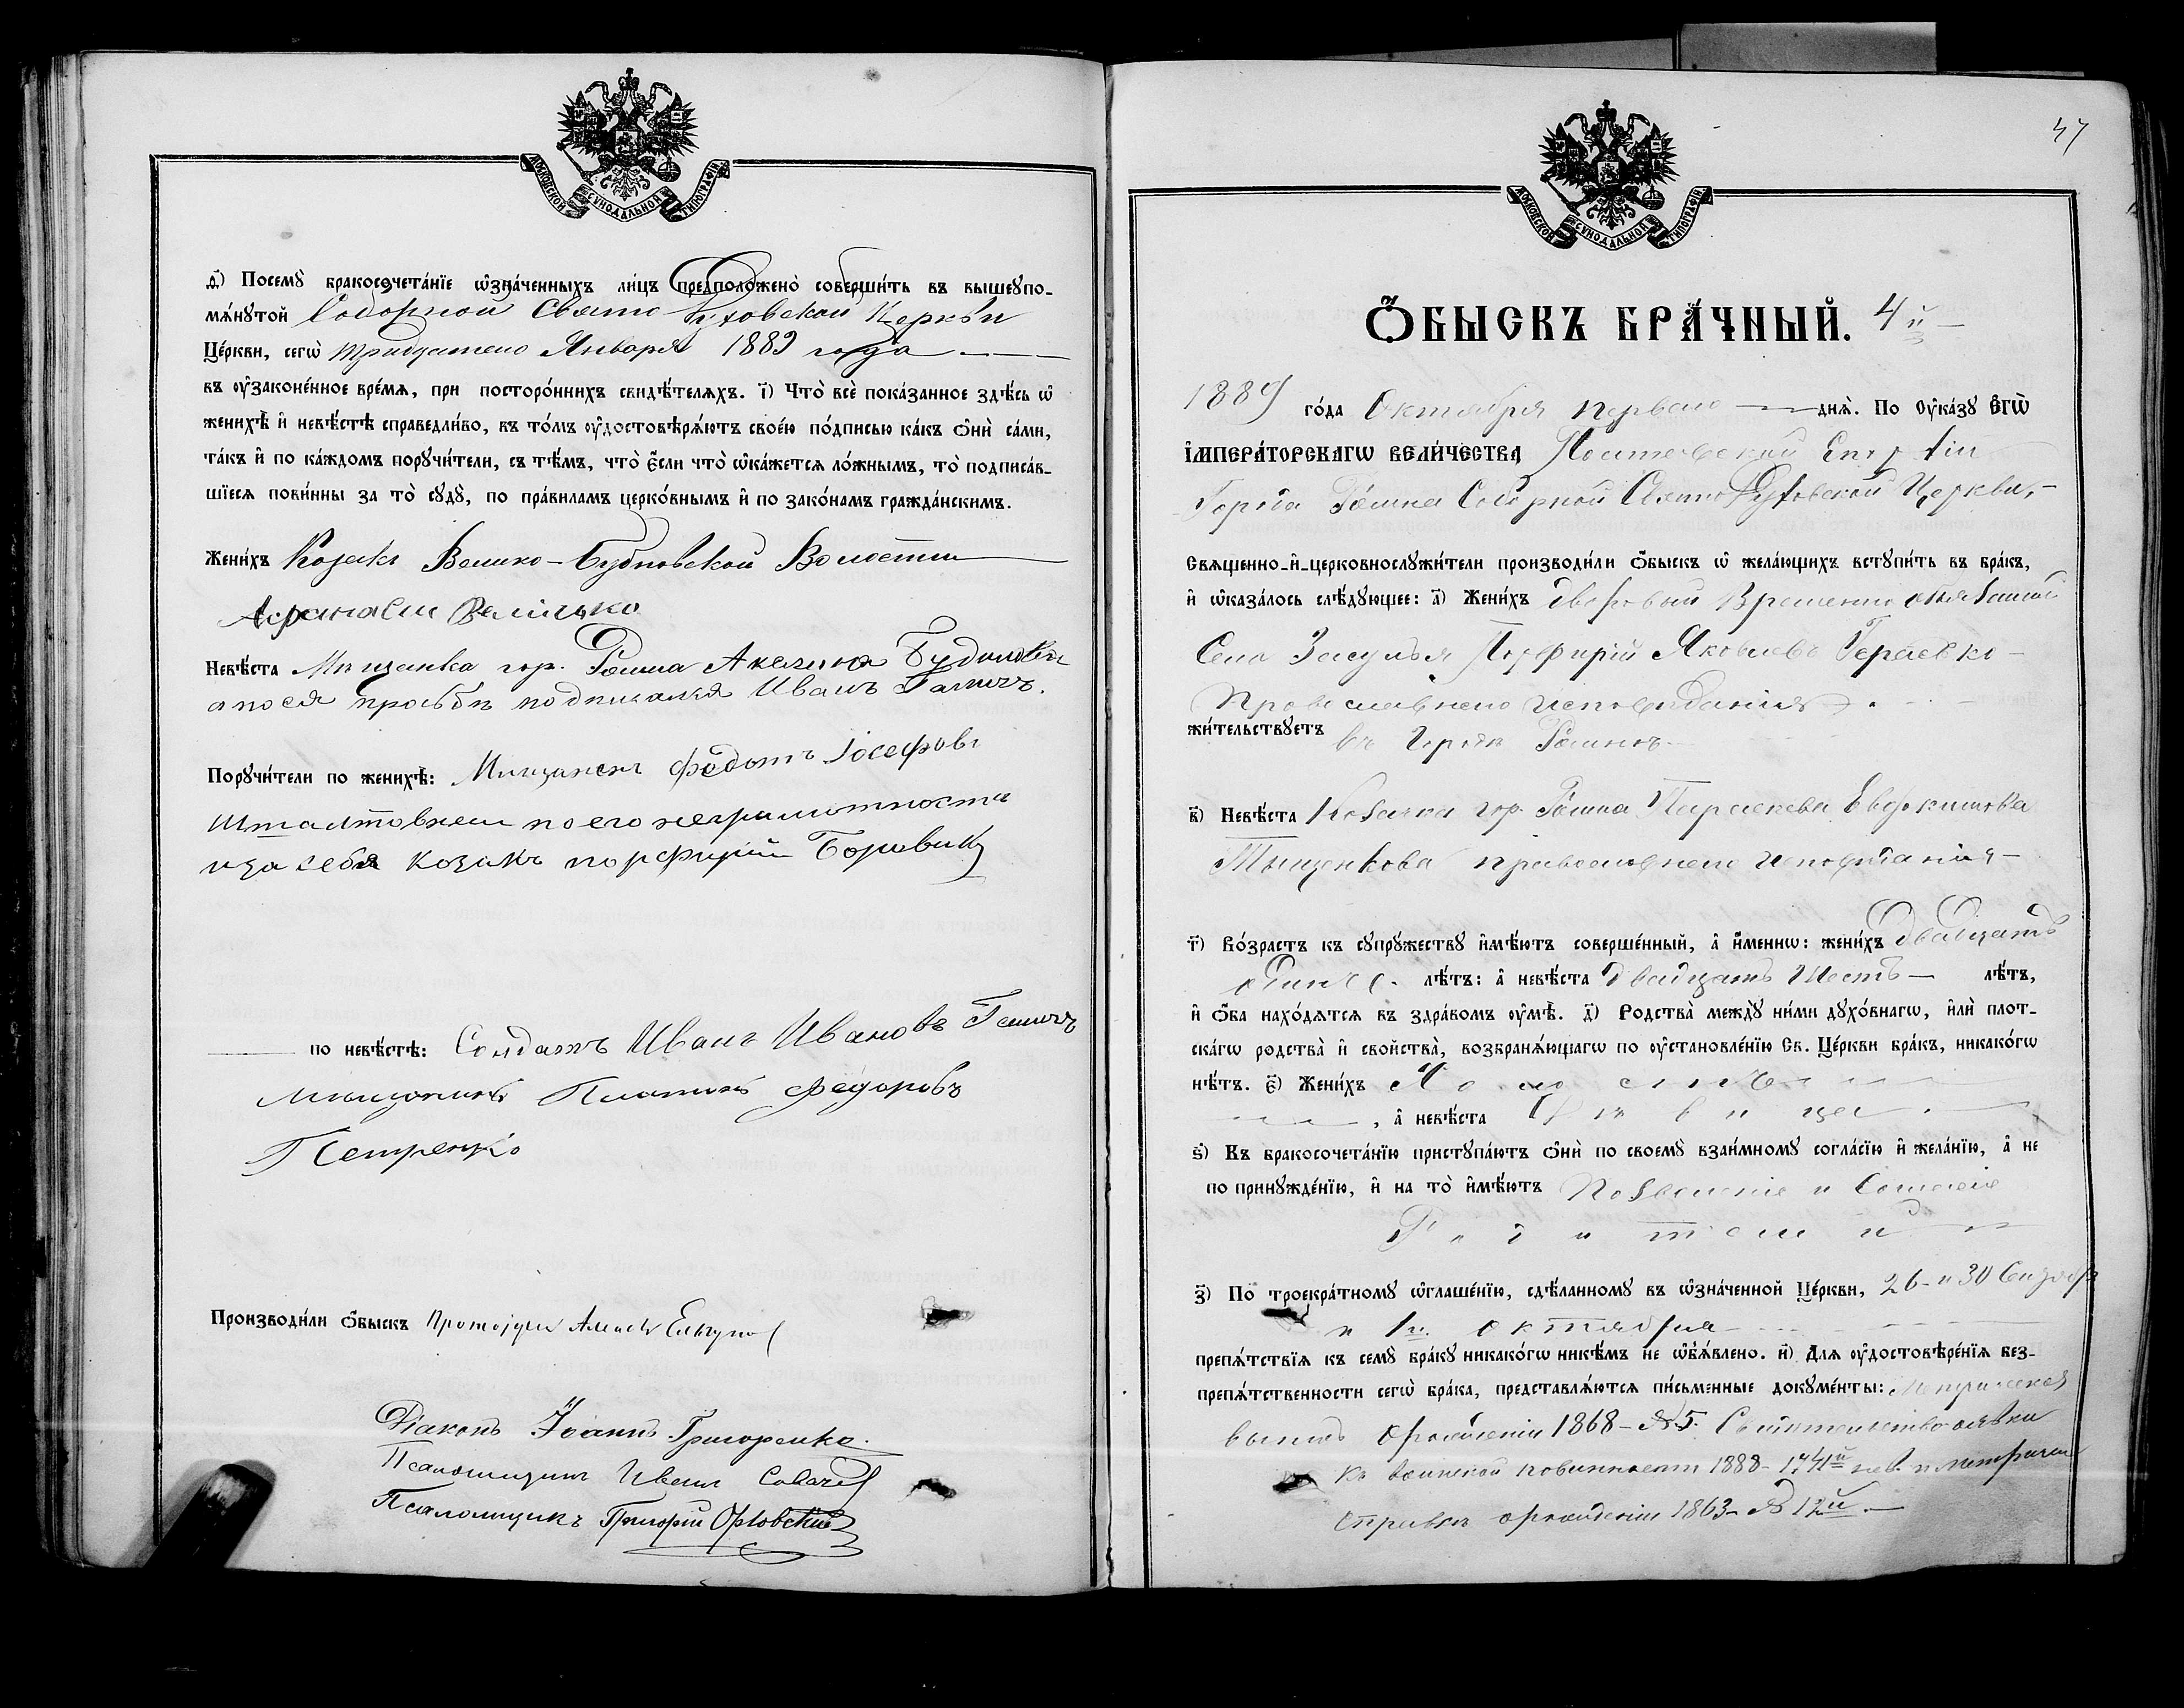 МОСКОВСКОЙ СѴНОДАЛЬНОЙ ТИПОГРАФІИ
д҃) Посемꙋ̀ бракосочета́нїе ѡ҆зна́ченныхъ ли́цъ предположено̀ соверши́ть въ вышеꙋпо-
мѧ́нꙋтой Соборной Свято Духовской Церкви
Це́ркви, сегѡ̀ тридцатого Января 1889 года
въ ᲂу҆законе́нное вре́мѧ, при посторо́ннихъ свидѣ́телѧхъ. і҃) Что̀ всѐ пока́занное здѣ́сь ѡ҆
женихѣ̀ и҆ невѣ́стѣ справедли́во, въ то́мъ ᲂу҆достовѣрѧ́ютъ своє́ю по́дписью ка́къ ѻ҆нѝ са́ми,
та́къ и҆ по ка́ждомъ порꙋчи́тели, съ тѣ́мъ, что̀ є҆́сли что̀ ѡ҆ка́жетсѧ ло́жнымъ, то̀ подписа́в-
шїесѧ пови́нны за то̀ сꙋдꙋ̀, по пра́виламъ церко́внымъ и҆ по зако́намъ гражда́нскимъ.
Жени́хъ Козакъ Велико-Бубновской Волости
Афанасій Велічько
Невѣ́ста Мѣщанка гор. Ромна Акелина
а по ея просьбѣ подписался Иванъ Галичъ.
Порꙋчи́тели по женихѣ̀: Мищанинъ Федотъ Іосефовъ
по его неграмотности
и за себя козакъ Порфирій Боровикъ
по невѣ́стѣ: Солдатъ Иванъ Ивановъ Галичъ
мѣщанинъ Платонъ Федоровъ
Петренко
Производи́ли ѻ҆́быскъ Протоіерей
Діаконъ Іоаннъ Григоренко.
Псаломщикъ Иванъ
Псаломщикъ Григорій Орловскій
47
МОСКОВСКОЙ СѴНОДАЛЬНОЙ ТИПОГРАФІИ
Ѻ҆́БЫСКЪ БРА́ЧНЫЙ. 4й
1889 го́да Октября перваго днѧ̀. По ᲂу҆ка́зꙋ Є҆ГѠ̀
І҆МПЕРА́ТОРСКАГѠ ВЕЛИ́ЧЕСТВА Полтавской Епархіи
Города Ромна Соборной Свято Духовской Церкви,
Свѧщенно-и҆-церковнослꙋжи́тели производи́ли ѻ҆́быскъ ѡ҆ жела́ющихъ встꙋпи́ть въ бра́къ,
и҆ ѡ҆каза́лось слѣ́дꙋющее: а҃) Жени́хъ дворовый Временно обязанный
Села Засулья Порфирій Яковлевъ
Православнаго исповѣданія
жи́тельствꙋетъ въ Городѣ Ромнѣ
в҃) Невѣ́ста Козачка гор. Ромна Параскева Евдокимова
Тищенкова православнаго исповѣданія
г҃) Во́зрастъ къ сꙋпрꙋ́жествꙋ и҆мѣ́ютъ соверше́нный, а҆ и҆́меннѡ: жени́хъ двадцать
одинъ лѣ́тъ: а҆ невѣ́ста двадцать шесть лѣ́тъ,
и҆ ѻ҆́ба нахо́дѧтсѧ въ здра́вомъ ᲂу҆мѣ̀. д҃) Родства̀ междꙋ̀ ни́ми дꙋхо́внагѡ, и҆лѝ плот-
ска́гѡ родства̀ и҆ свойства̀, возбранѧ́ющагѡ по ᲂу҆становле́нїю Св. Це́ркви бра́къ, никако́гѡ
нѣ́тъ. є҃) Жени́хъ Холостъ
, а҆ невѣ́ста Дѣвица
ѕ҃) Къ бракосочета́нїю пристꙋпа́ютъ ѻ҆нѝ по своемꙋ̀ взаи́мномꙋ согла́сїю и҆ жела́нїю, а҆ не
по принꙋжде́нїю, и҆ на то̀ и҆мѣ́ютъ Позволеніе и Согласіе
Родителей
з҃) По троекра́тномꙋ ѡ҆глаше́нїю, сдѣ́ланномꙋ въ ѡ҆зна́ченной Це́ркви, 26 и 30 Сентября
и 1го Октября
препѧ́тствїѧ къ семꙋ̀ бра́кꙋ никако́гѡ никѣ́мъ не ѡ҆б̾ѧ́влено. и҃) Длѧ ᲂу҆достовѣре́нїѧ без-
препѧ́тственности сегѡ̀ бра́ка, представлѧ́ютсѧ пи́сьменные докꙋме́нты: Метрическая
выпись о рожденіи 1868 №5. Свидѣтельство о явкѣ
къ воинской повинности 1888 нев. метричес
справка о рожденіи 1863 № 12й